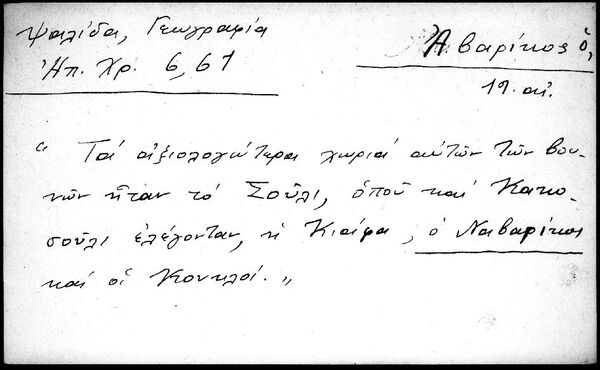 Ψαλίδα, Γεωγραφία
Ἠπ. Χρ. 6, 61
Ἀβαρίκος ὁ,
19. αἰ.
“ Τά ἀξιολογώτερα χωριά αὐτῶν τῶν βου-
νῶν ἦταν τό Σοῦλι, ὁποῦ καί Κακο-
σοῦλι ἐλέγονταν, ἡ Κιάφα, ὁ Ναβαρίκος
καί οἱ Κονκλοί. „